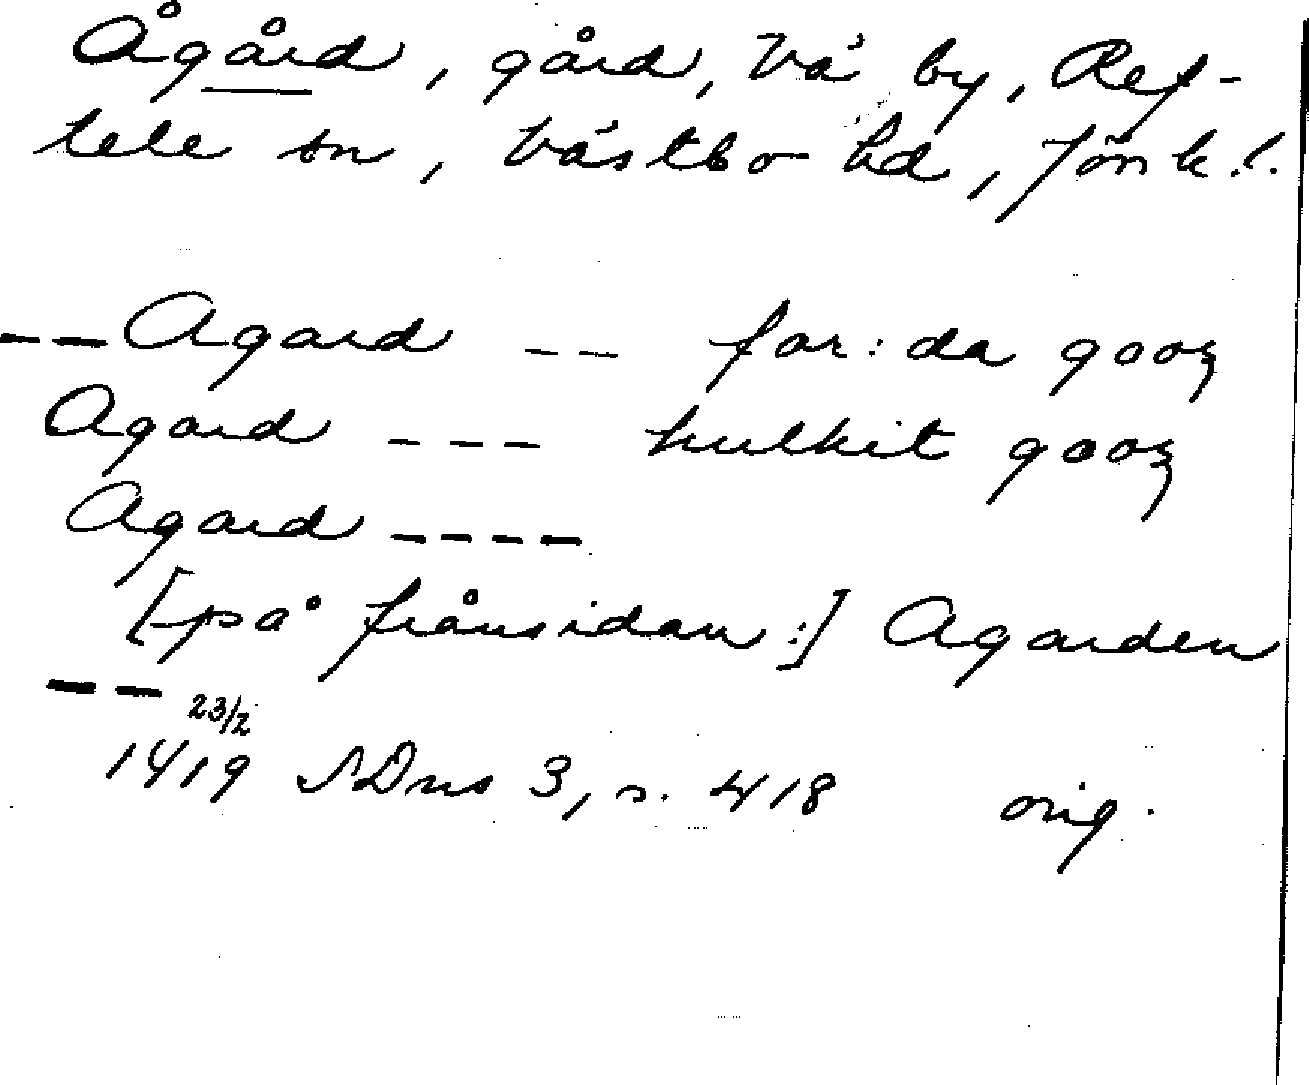 Ågård, gård, Vä by, Ref-
tele sn, Västbo hd, Jönk. l.
-- Agard -- for:da gooz
Agard --- hulkit gooz
Agard ----
[på frånsidan:] Agarden
-- 23/2
1419 SDns 3, s. 418 orig.